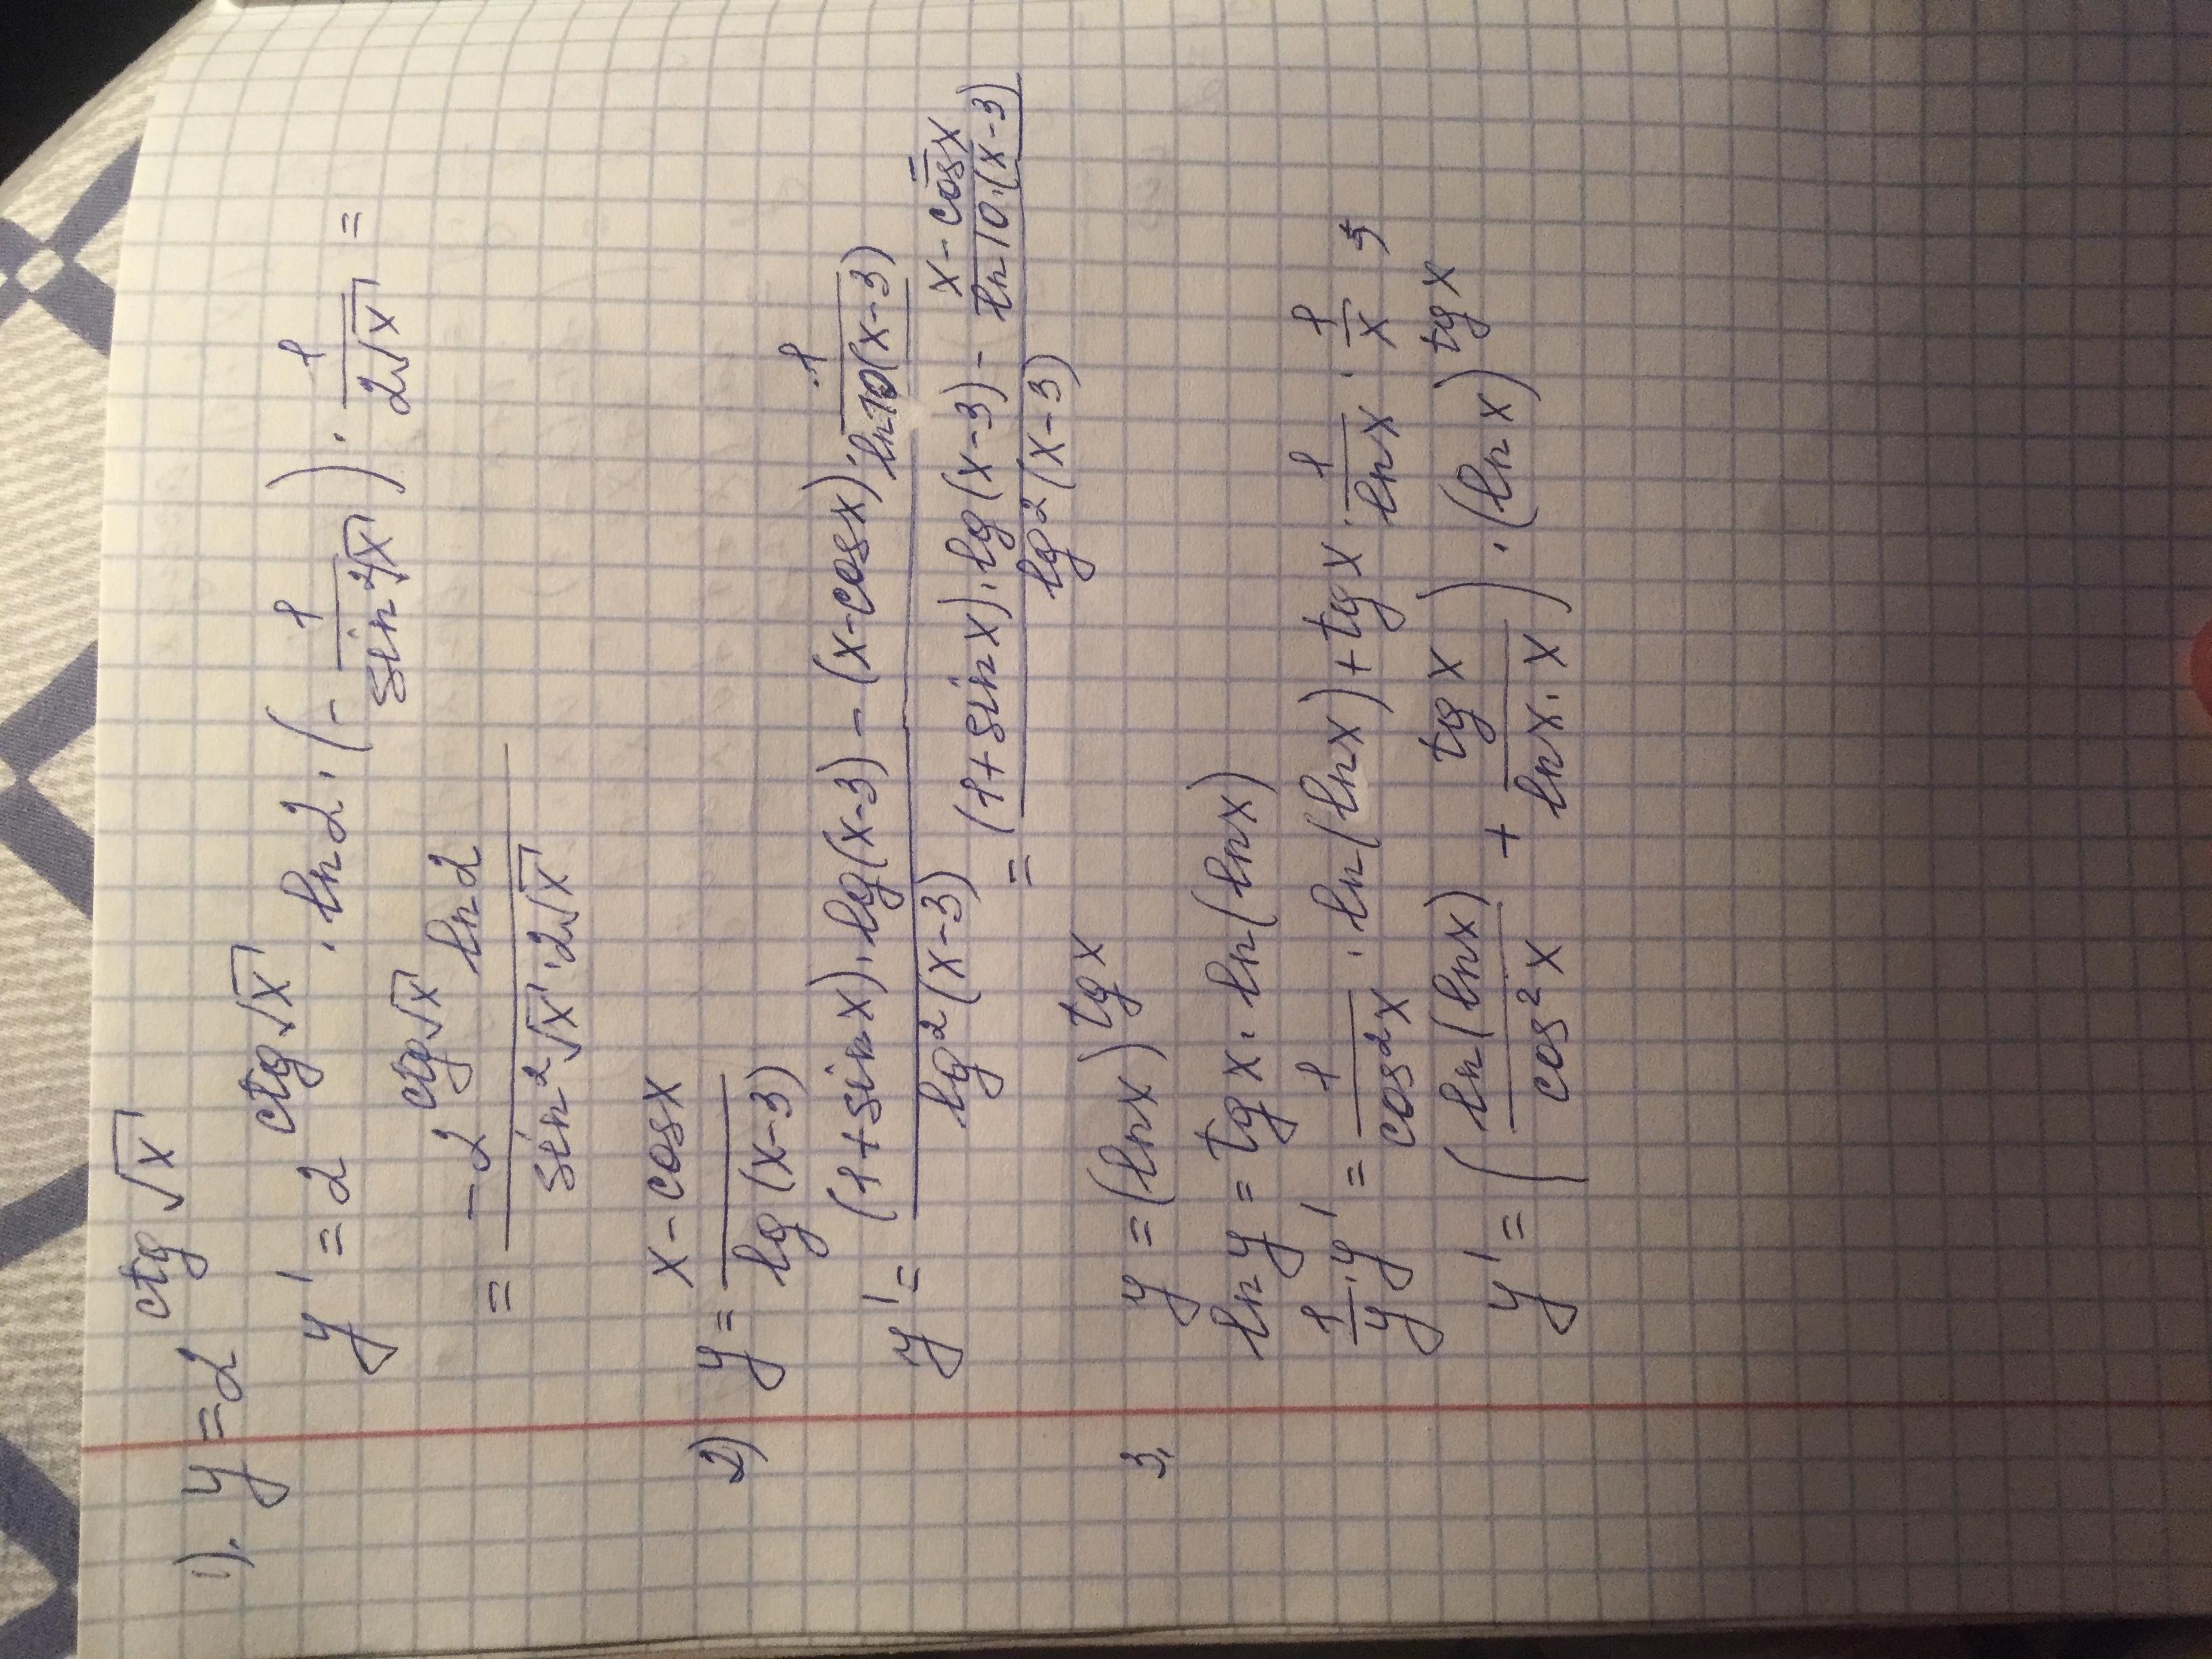 1). y = 2^(ctg √x)
y' = 2^(ctg √x) · ln 2 · (- 1/(sin² √x)) · 1/(2√x) =
= (-2^(ctg √x) ln 2)/(sin² √x · 2√x)
2) y = (x - cos x)/(lg (x-3))
y' = ((1 + sin x) · lg (x-3) - (x - cos x) · 1/(ln 10 (x-3)))/(lg² (x-3)) =
= ((1 + sin x) · lg (x-3) - (x - cos x)/(ln 10 · (x-3)))/(lg² (x-3))
3, y = (ln x)^(tg x)
ln y = tg x · ln (ln x)
1/y · y' = 1/(cos² x) · ln (ln x) + tg x · 1/(ln x) · 1/x ,
y' = ( (ln (ln x))/(cos² x) + (tg x)/(ln x · x) ) · (ln x)^(tg x)